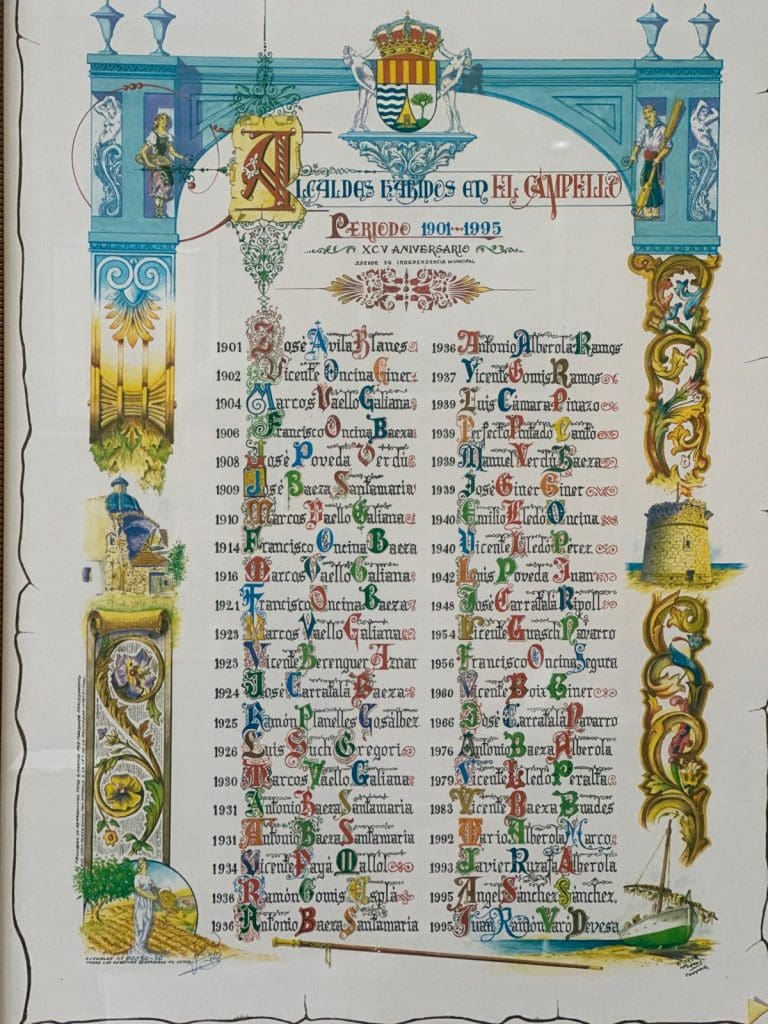 ALCALDES HABIDOS EN EL CAMPELLO
PERIODO 1901-1995
XCV ANIVERSARIO
DESDE SU INDEPENDENCIA MUNICIPAL
1901 José Avila Blanes
1902 Vicente Oncina Giner
1904 Marcos Vaello Galiana
1906 Francisco Oncina Baeza
1908 José Poveda Verdú
1909 José Baeza Santamaria
1910 Marcos Baello Galiana
1914 Francisco Oncina Baeza
1916 Marcos Vaello Galiana
1921 Francisco Oncina Baeza
1923 Marcos Vaello Galiana
1923 Vicente Berenguer Aznar
1924 José Carratalá Baeza
1925 Ramón Planelles Gosálbez
1926 Luis Such Gregori
1930 Marcos Vaello Galiana
1931 Antonio Baeza Santamaria
1931 Antonio Baeza Santamaria
1934 Vicente Payá Mallol
1936 Ramón Gomis Esplá
1936 Antonio Baeza Santamaria
1936 Antonio Alberola Ramos
1937 Vicente Gomis Ramos
1939 Luis Cámara Pinazo
1939 Perfecto Pintado Canto
1939 Manuel Verdú Baeza
1939 José Giner Giner
1940 Emilio Lledó Oncina
1940 Vicente Lledó Perez
1942 Luis Poveda Juan
1948 José Carratalá Ripoll
1954 Vicente Guasch Navarro
1956 Francisco Oncina Segura
1960 Vicente Boix Giner
1966 José Carratalá Navarro
1976 Antonio Baeza Alberola
1979 Vicente Lledó Peralta
1983 Vicente Baeza Buades
1992 Mario Alberola Marco
1993 Javier Ruzafa Alberola
1995 Angel Sánchez Sánchez
1995 Juan Ramón Varó Devesa
EJEMPLAR Nº
TODOS LOS DERECHOS RESERVADOS